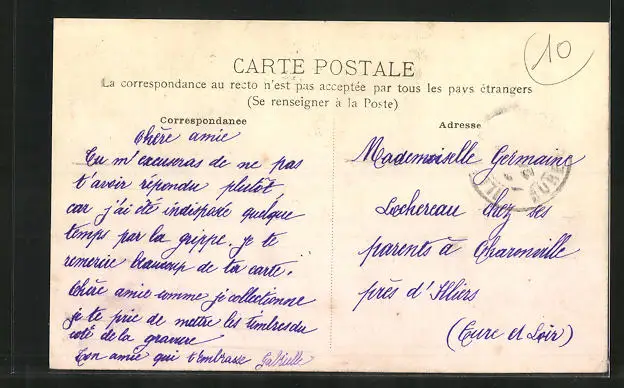 10
CARTE POSTALE
La correspondance au recto n'est pas acceptée par tous les pays étrangers
(Se renseigner à la Poste)
Correspondance
Chère amie
Tu m'excuseras de ne pas
t'avoir répondu plutôt
car j'ai été indisposée quelque
temps par la grippe. je te
remercie beaucoup de ta carte.
Chère amie comme je collectionne
je te prie de mettre les timbres du
coté de la gravure
Ton amie qui t'embrasse Gabrielle
Adresse
Mademoiselle Germaine
Lochereau chez ses
parents à Charonville
près d'Illiers
(Eure et Loir)